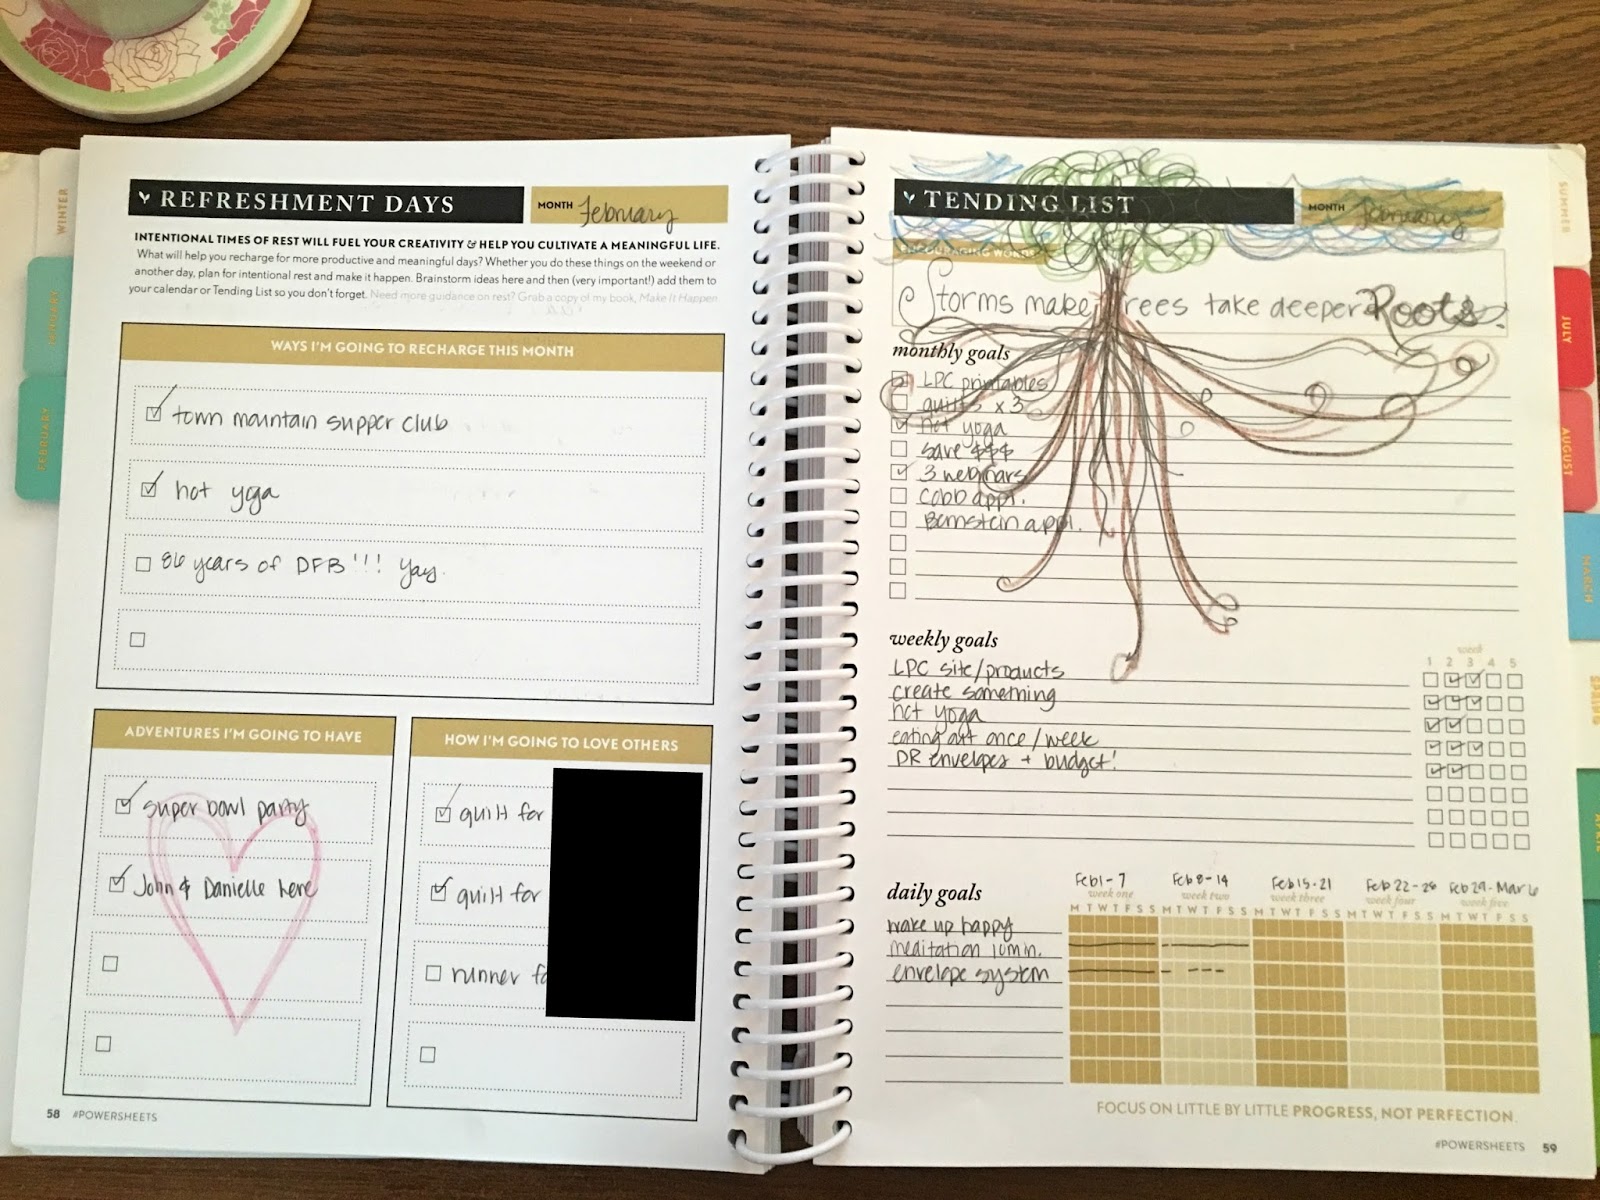 WINTER
JANUARY
FEBRUARY
REFRESHMENT DAYS
MONTH February
INTENTIONAL TIMES OF REST WILL FUEL YOUR CREATIVITY & HELP YOU CULTIVATE A MEANINGFUL LIFE.
What will help you recharge for more productive and meaningful days? Whether you do these things on the weekend or
another day, plan for intentional rest and make it happen. Brainstorm ideas here and then (very important!) add them to
your calendar or Tending List so you don't forget. Need more guidance on rest? Grab a copy of my book, Make It Happen
WAYS I'M GOING TO RECHARGE THIS MONTH
town mountain supper club
hot yoga
86 years of DFB!!! Yay.
ADVENTURES I'M GOING TO HAVE
super bowl party
John & Danielle here
HOW I'M GOING TO LOVE OTHERS
quilt for
quilt for
runner fo
58 #POWERSHEETS
TENDING LIST
MONTH February
ENCOURAGING WORDS
Storms make trees take deeper Roots.
monthly goals
LPC printables
quilts x 3
hot yoga
save $$$
3 webinars
Cobb appl.
Bernstein appl.
weekly goals
week
1 2 3 4 5
LPC site/products
create something
hot yoga
eating out once/week
DR envelopes + budget!
daily goals
Feb 1-7 Feb 8-14 Feb 15-21 Feb 22-28 Feb 29-Mar 6
week one week two week three week four week five
M T W T F S S M T W T F S S M T W T F S S M T W T F S S M T W T F S S
wake up happy
meditation 10 min.
envelope system
FOCUS ON LITTLE BY LITTLE PROGRESS, NOT PERFECTION.
#POWERSHEETS 59
SUMMER
JULY
AUGUST
MARCH
SPRING
APRIL